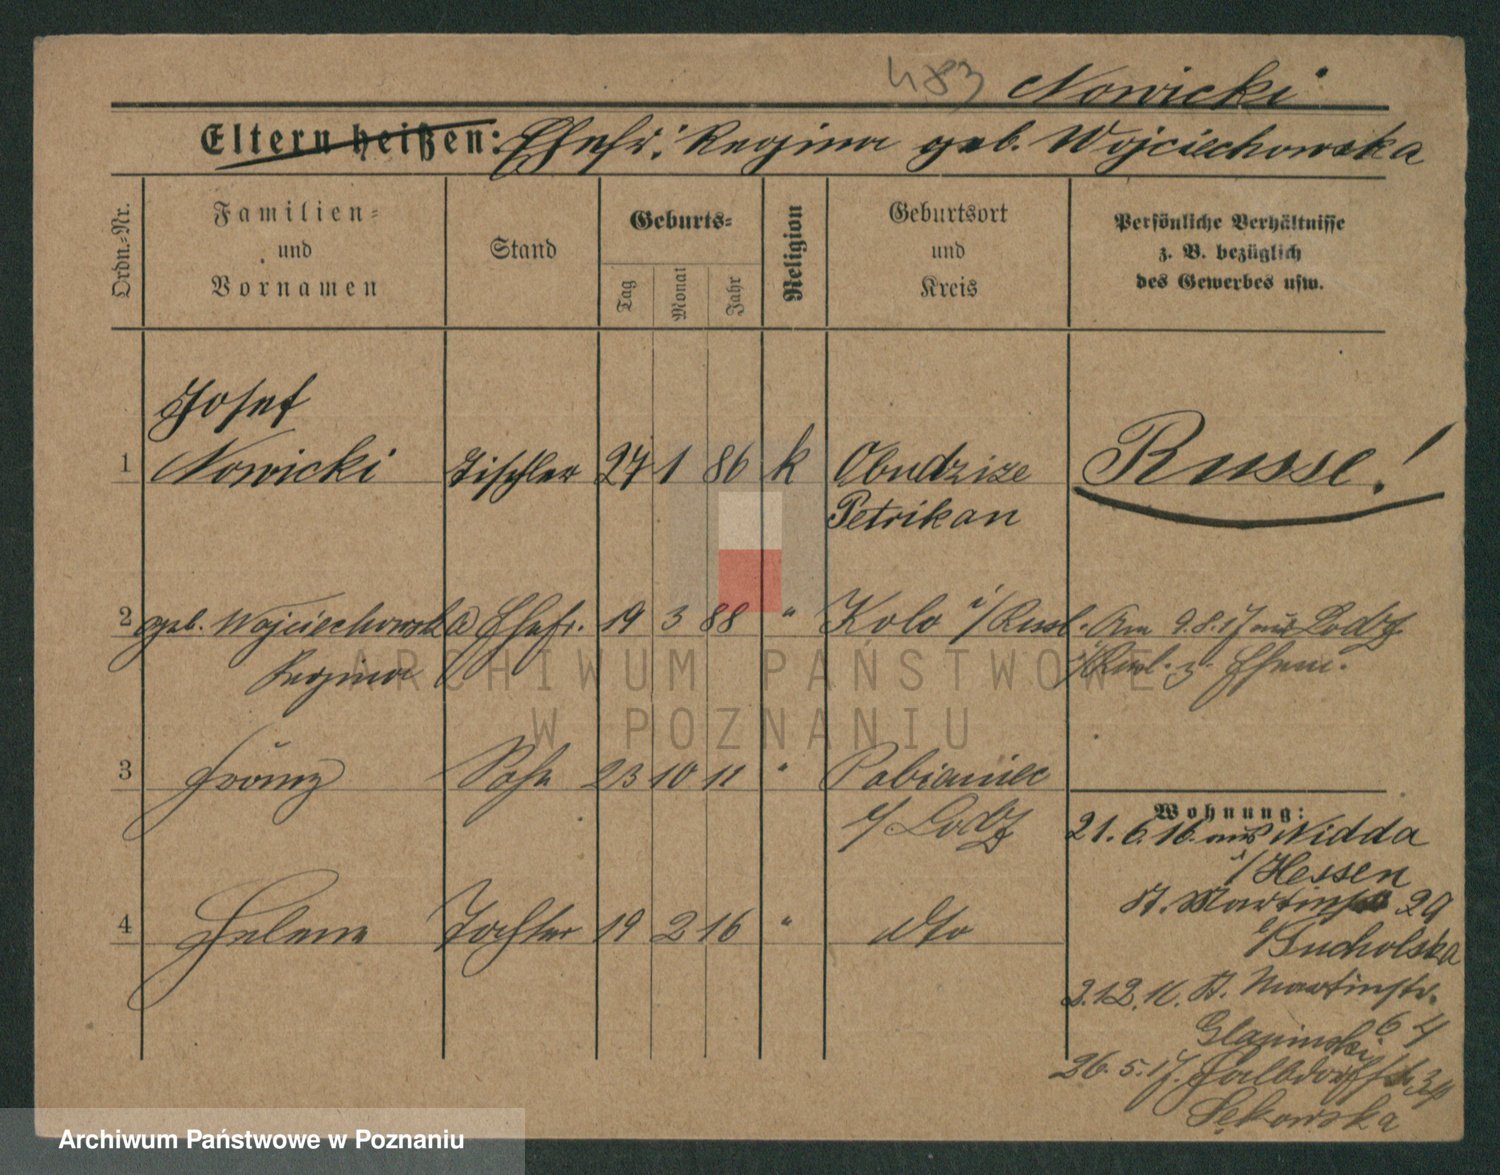 483 Nowicki
Eltern heißen: Ehefr: Regina geb. Wojciechowska
Ordn.=Nr.
Familien=
und
Vornamen
Stand
Geburts=
Tag
Monat
Jahr
Religion
Geburtsort
und
Kreis
Persönliche Verhältnisse
z. B. bezüglich
des Gewerbes usw.
Josef
1 Nowicki Tischler 27 1 86 k Obudzize Russe!
Petrikan
2 geb. Wojciechowska Ehefr. 19 3 88 " Kolo i/Russl. Am 9.8.17 aus Lodz
Regina i/Russl. z. Ehem.
3 Franz Sohn 23 10 11 " Pabianiec
b/Lodz
Wohnung:
21.6.16 aus Nidda
i/Hessen
4 Helene Tochter 19 2 16 " dto
St. Martinstr 29
b/Bucholska
2.12.16. St. Martinstr.
64
Glapinski
26.5.17. Halbdorfstr
Sękowska
ARCHIWUM PAŃSTWOWE
W POZNANIU
Archiwum Państwowe w Poznaniu